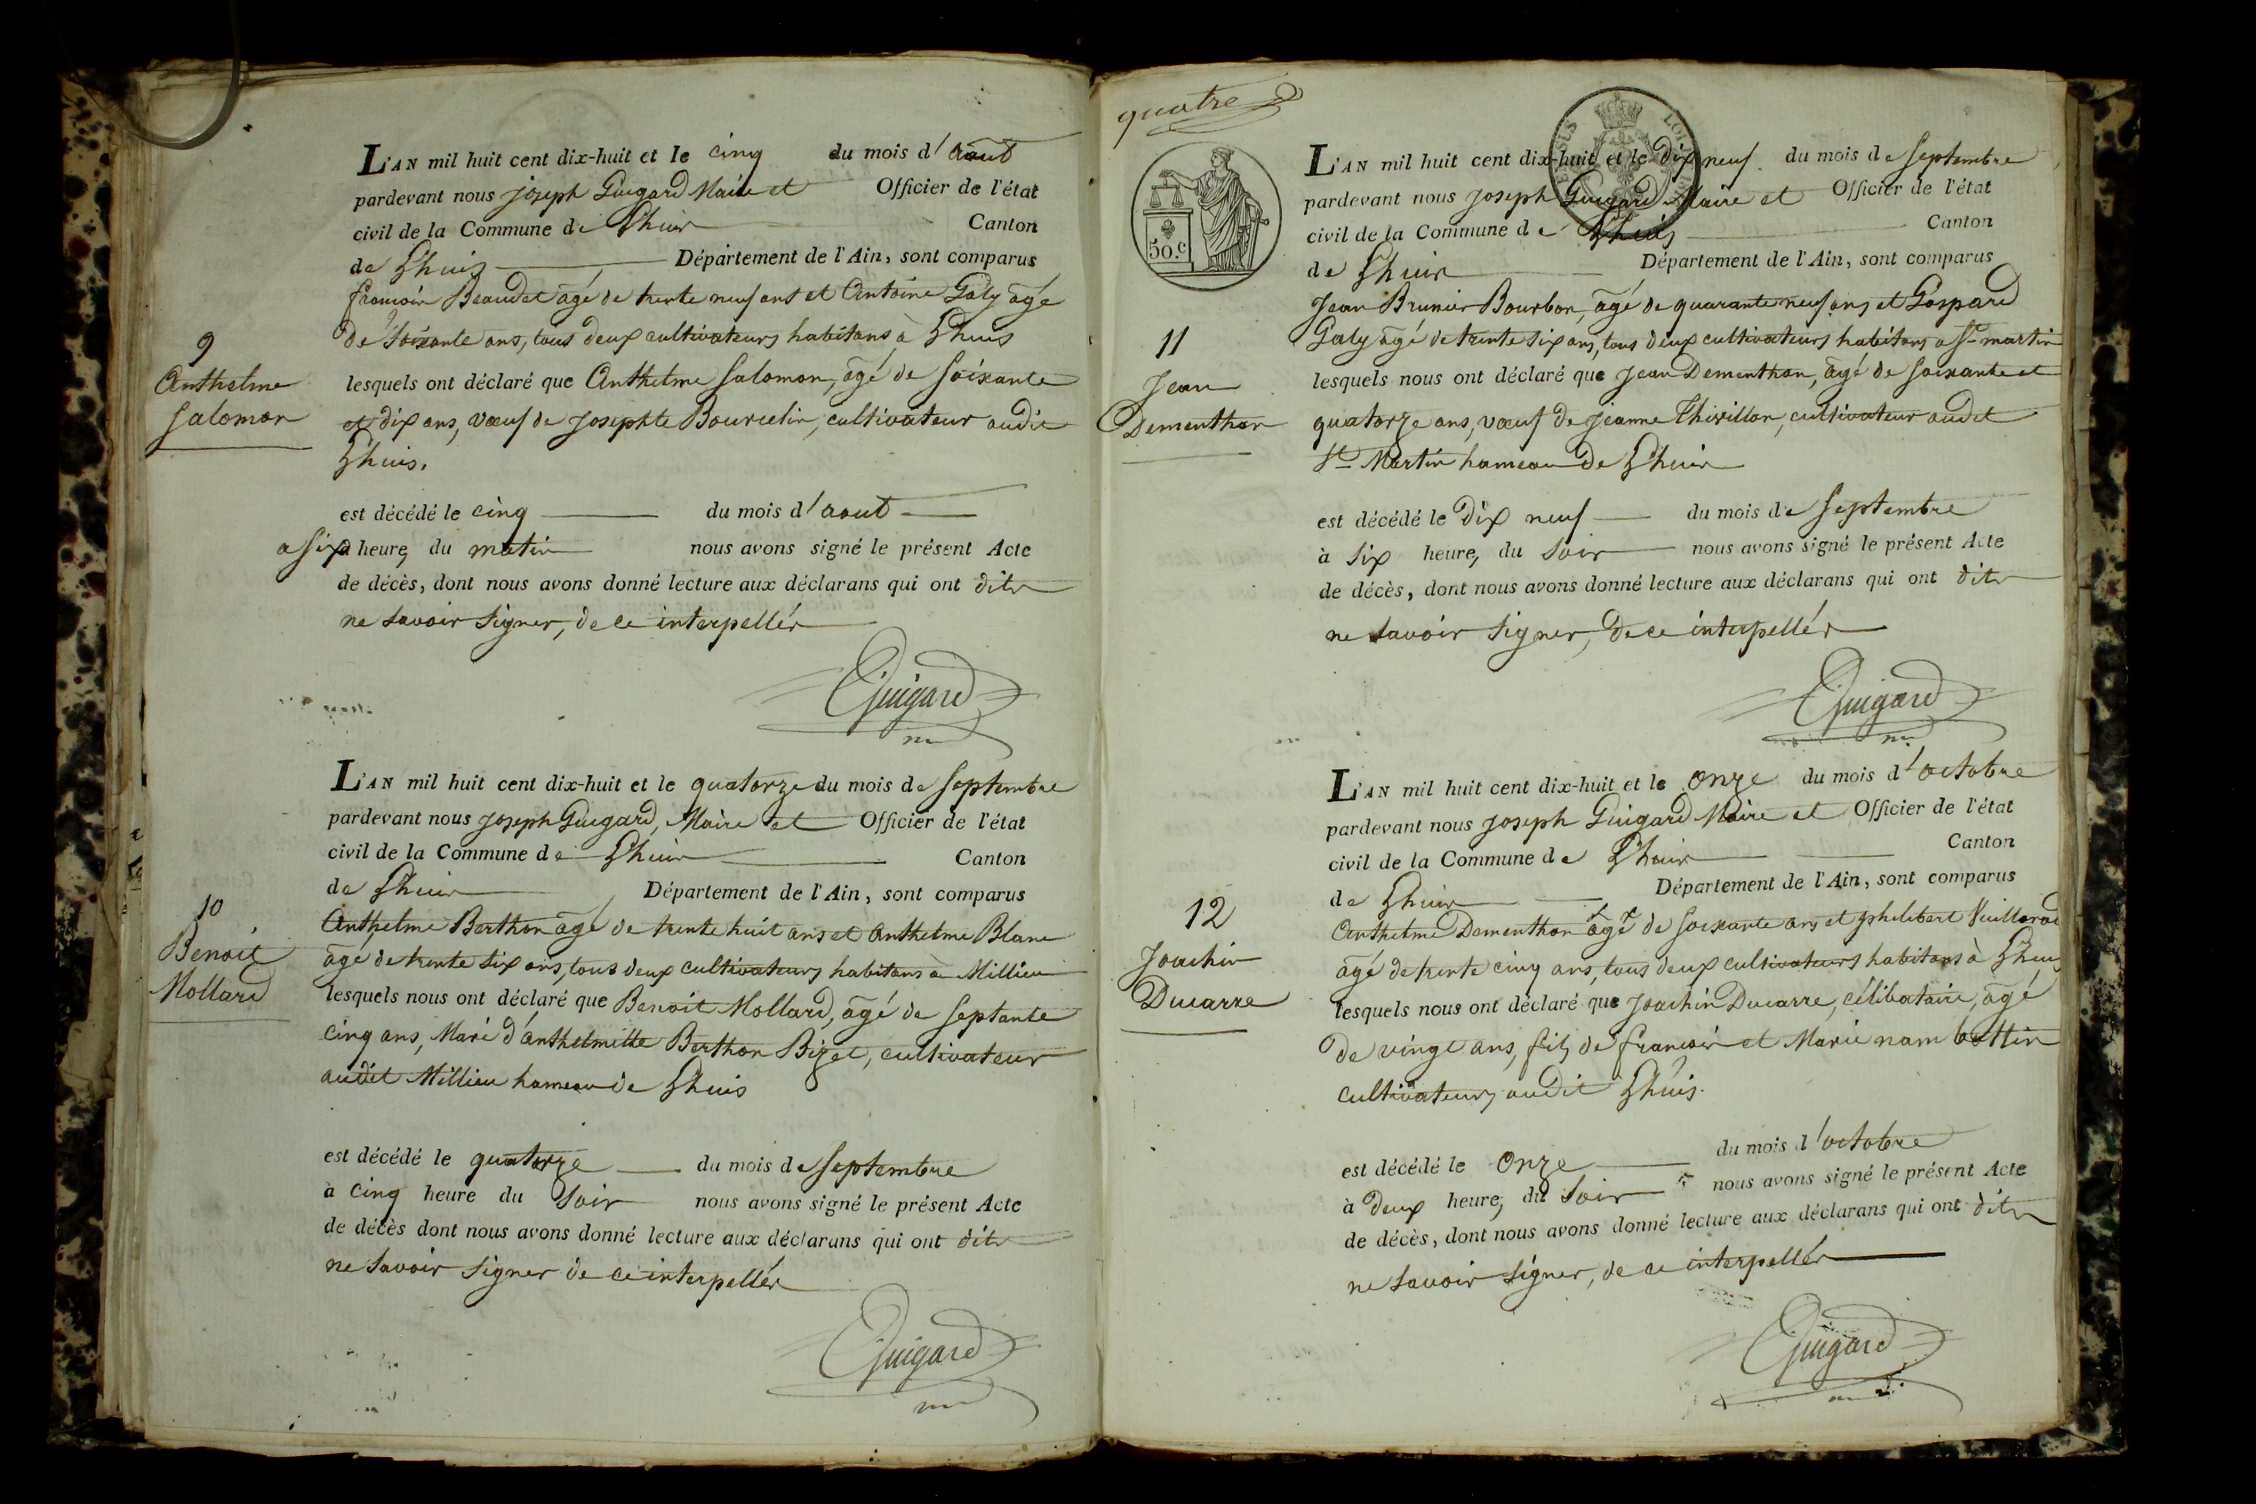 L'AN mil huit cent dix-huit et le cinq du mois d'aout
pardevant nous joseph Guigard Maire et Officier de l'état
civil de la Commune de Lhuis Canton
de Lhuis Département de l'Ain, sont comparus
françois Beaudet âgé de trente neuf ans et Antoine Galy âgé
de Soixante ans, tous deux cultivateurs habitans à Lhuis
9
Anthelme
Salomon
lesquels ont déclaré que Anthelme Salomon, âgé de Soixante
et dix ans, vœuf de Josephte Bourcelin, cultivateur audit
Lhuis.
est décédé le cinq du mois d'aout
a six heures du matin nous avons signé le présent Acte
de décès, dont nous avons donné lecture aux déclarans qui ont dits
ne Savoir Signer, de ce interpellés
Guigard
L'AN mil huit cent dix-huit et le quatorze du mois de Septembre
pardevant nous joseph Guigard, Maire et Officier de l'état
civil de la Commune de Lhuis Canton
de Lhuis Département de l'Ain, sont comparus
10
Benoit
Mollard
Anthelme Berthon âgé de trente huit ans et Anthelme Blanc
âgé de trente six ans, tous deux cultivateurs habitans à Millieu
lesquels nous ont déclaré que Benoit Mollard, âgé de Septante
cinq ans, Mari d'anthelmette Berthon Bizet, cultivateur
audit Millieu hameau de Lhuis
est décédé le quatorze du mois de Septembre
à cinq heure du Soir nous avons signé le présent Acte
de décès dont nous avons donné lecture aux déclarans qui ont dits
ne Savoir Signer de ce interpellés
Guigard
quatre
50.c
L'AN mil huit cent dix-huit et le dix neuf du mois de Septembre
pardevant nous joseph Guigard Maire et Officier de l'état
civil de la Commune de Lhuis Canton
de Lhuis Département de l'Ain, sont comparus
Jean Brunier Bourbon, âgé de quarante neuf ans et Gaspard
Galy âgé de trente six ans, tous deux cultivateurs habitans a St martin
11
Jean
Dementhon
lesquels nous ont déclaré que Jean Dementhon, âgé de Soixante et
quatorze ans, vœuf de Jeanne Thivillon, cultivateur audit
St Martin hameau de Lhuis
est décédé le dix neuf du mois de Septembre
à Six heures du Soir nous avons signé le présent Acte
de décès, dont nous avons donné lecture aux déclarans qui ont dits
ne Savoir Signer, de ce interpellés
Guigard
L'AN mil huit cent dix-huit et le onze du mois d'octobre
pardevant nous joseph Guigard Maire et Officier de l'état
civil de la Commune de Lhuis Canton
de Lhuis Département de l'Ain, sont comparus
12
Joachin
Ducarre
Anthelme Dementhon âgé de Soixante ans et philibert
âgé de trente cinq ans, tous deux cultivateurs habitans à Lhuis
lesquels nous ont déclaré que Joachin Ducarre, célibataire, âgé
de vingt ans, fils de françois et Marie nambottin
cultivateurs audit Lhuis.
est décédé le onze du mois d'octobre
à deux heures du Soir nous avons signé le présent Acte
de décès, dont nous avons donné lecture aux déclarans qui ont dits
ne Savoir Signer, de ce interpellés
Guigard